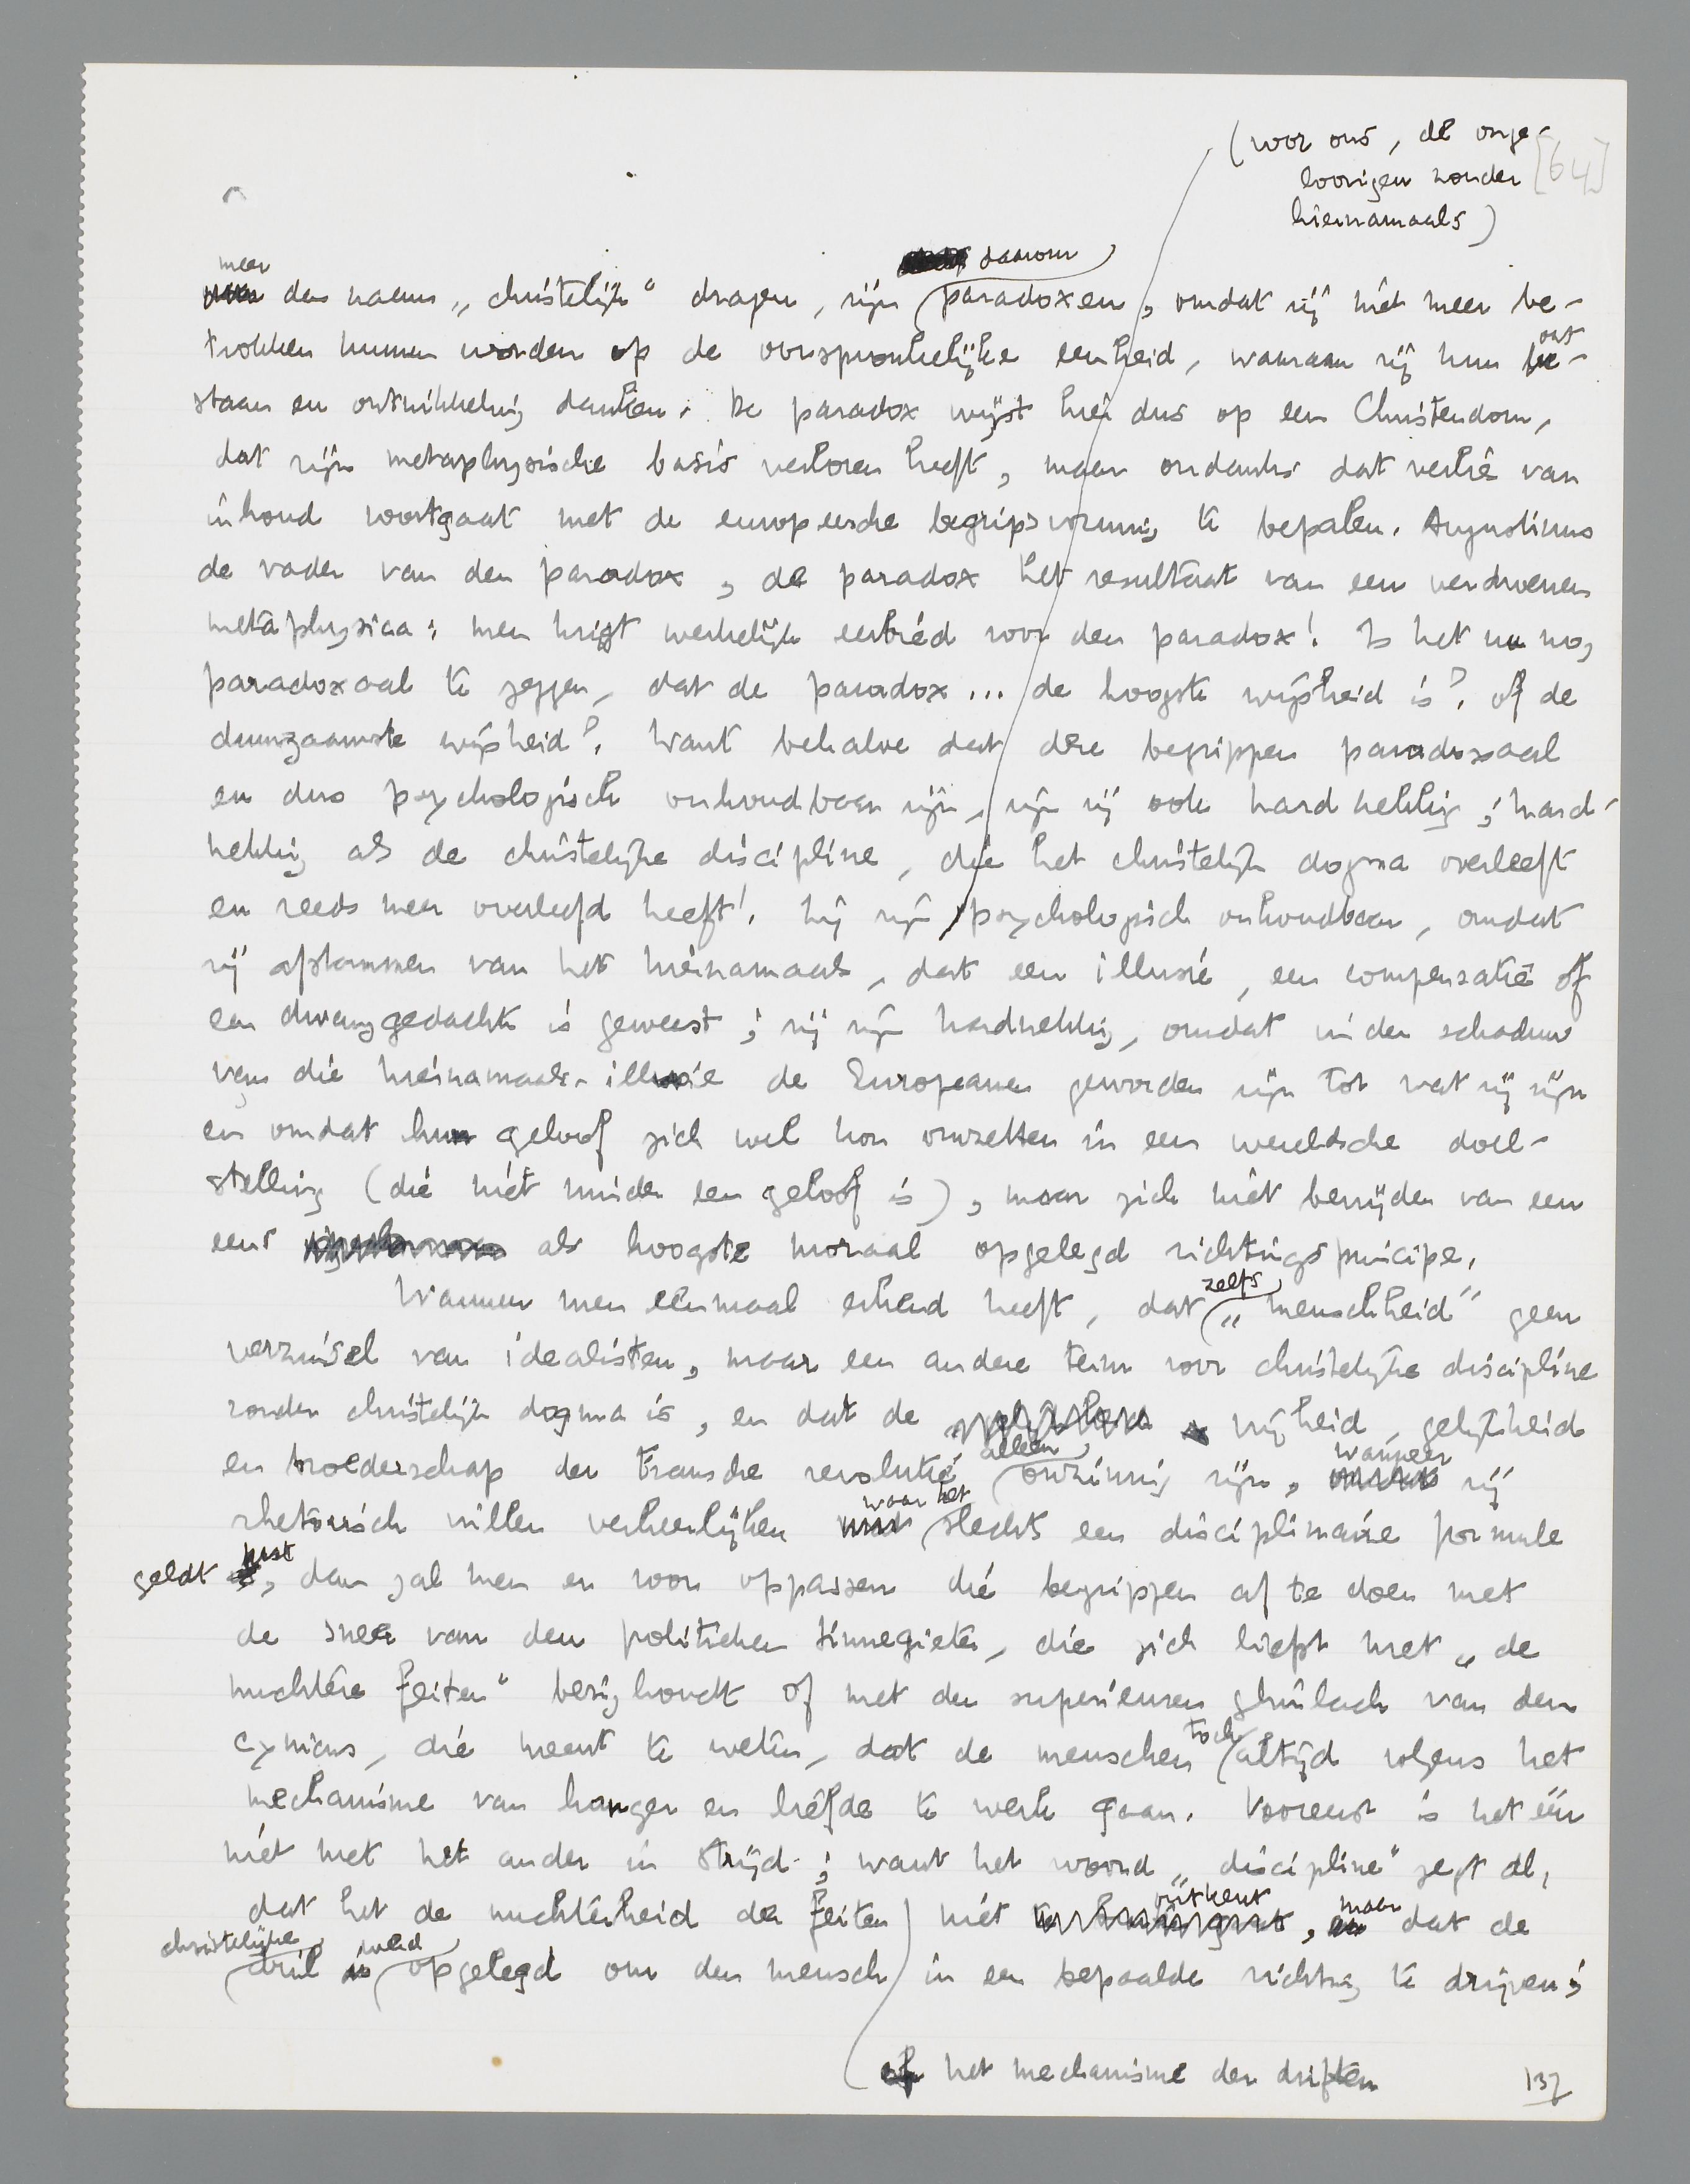 (voor ons, de onge-
loovigen zonder
hiernamaals)
[64]
daarom
meer
den naam „christelijk“ dragen, zijn paradoxen, omdat zij niet meer be-
trokken kunnen worden op de oorspronkelijke eenheid, waaraan zij hun ont-
staan en ontwikkeling danken. De paradox wijst hier dus op een Christendom,
dat zijn metaphysische basis verloren heeft, maar ondanks dat verlies van
inhoud voortgaat met de europeesche begripsvorming te bepalen. Augustinus
de vader van den paradox, de paradox het resultaat van een verdwenen
metaphysica: men krijgt werkelijk eerbied voor den paradox! Is het nu nog
paradoxaal te zeggen, dat de paradox... de hoogste wijsheid is? of de
duurzaamste wijsheid? Want behalve dat deze begrippen paradoxaal
en dus psychologisch onhoudbaar zijn, zijn zij ook hardnekkig; hard-
nekkig als de christelijke discipline, die het christelijk dogma overleeft
en reeds meer overleefd heeft! Zij zijn psychologisch onhoudbaar, omdat
zij afstammen van het hiernamaals, dat een illusie, een compensatie of
een dwanggedachte is geweest; zij zijn hardnekkig, omdat in den schaduw
van die hiernamaals-illusie de Europeanen geworden zijn tot wat zij zijn
en omdat hun geloof zich wel kon omzetten in een wereldsche doel-
stelling (die niet minder een geloof is), maar zich niet bevrijden van een
eens als hoogste moraal opgelegd richtingsprincipe.
Wanneer men eenmaal erkend heeft, dat zelfs „menschheid“ geen
verzinsel van idealisten, maar een andere term voor christelijke discipline
zonder christelijk dogma is, en dat de vrijheid, gelijkheid
en broederschap der fransche revolutie alleen onzinnig zijn, wanneer zij
rhetorisch willen verheerlijken waar het slechts een disciplinaire formule
geldt, dan zal men er voor oppassen die begrippen af te doen met
de sneer van den politieken tinnegieter, die zich liefst met „de
nuchtere feiten“ bezighoudt of met den superieuren glimlach van den
cynicus, die meent te weten, dat de menschen toch altijd volgens het
mechanisme van honger en liefde te werk gaan. Vooreerst is het één
niet met het ander in strijd; want het woord „discipline“ zegt al,
dat het de nuchterheid der feiten niet ontkent, maar dat de
christelijke dril werd opgelegd om den mensch in een bepaalde richting te drijven;
of het mechanisme der driften
137